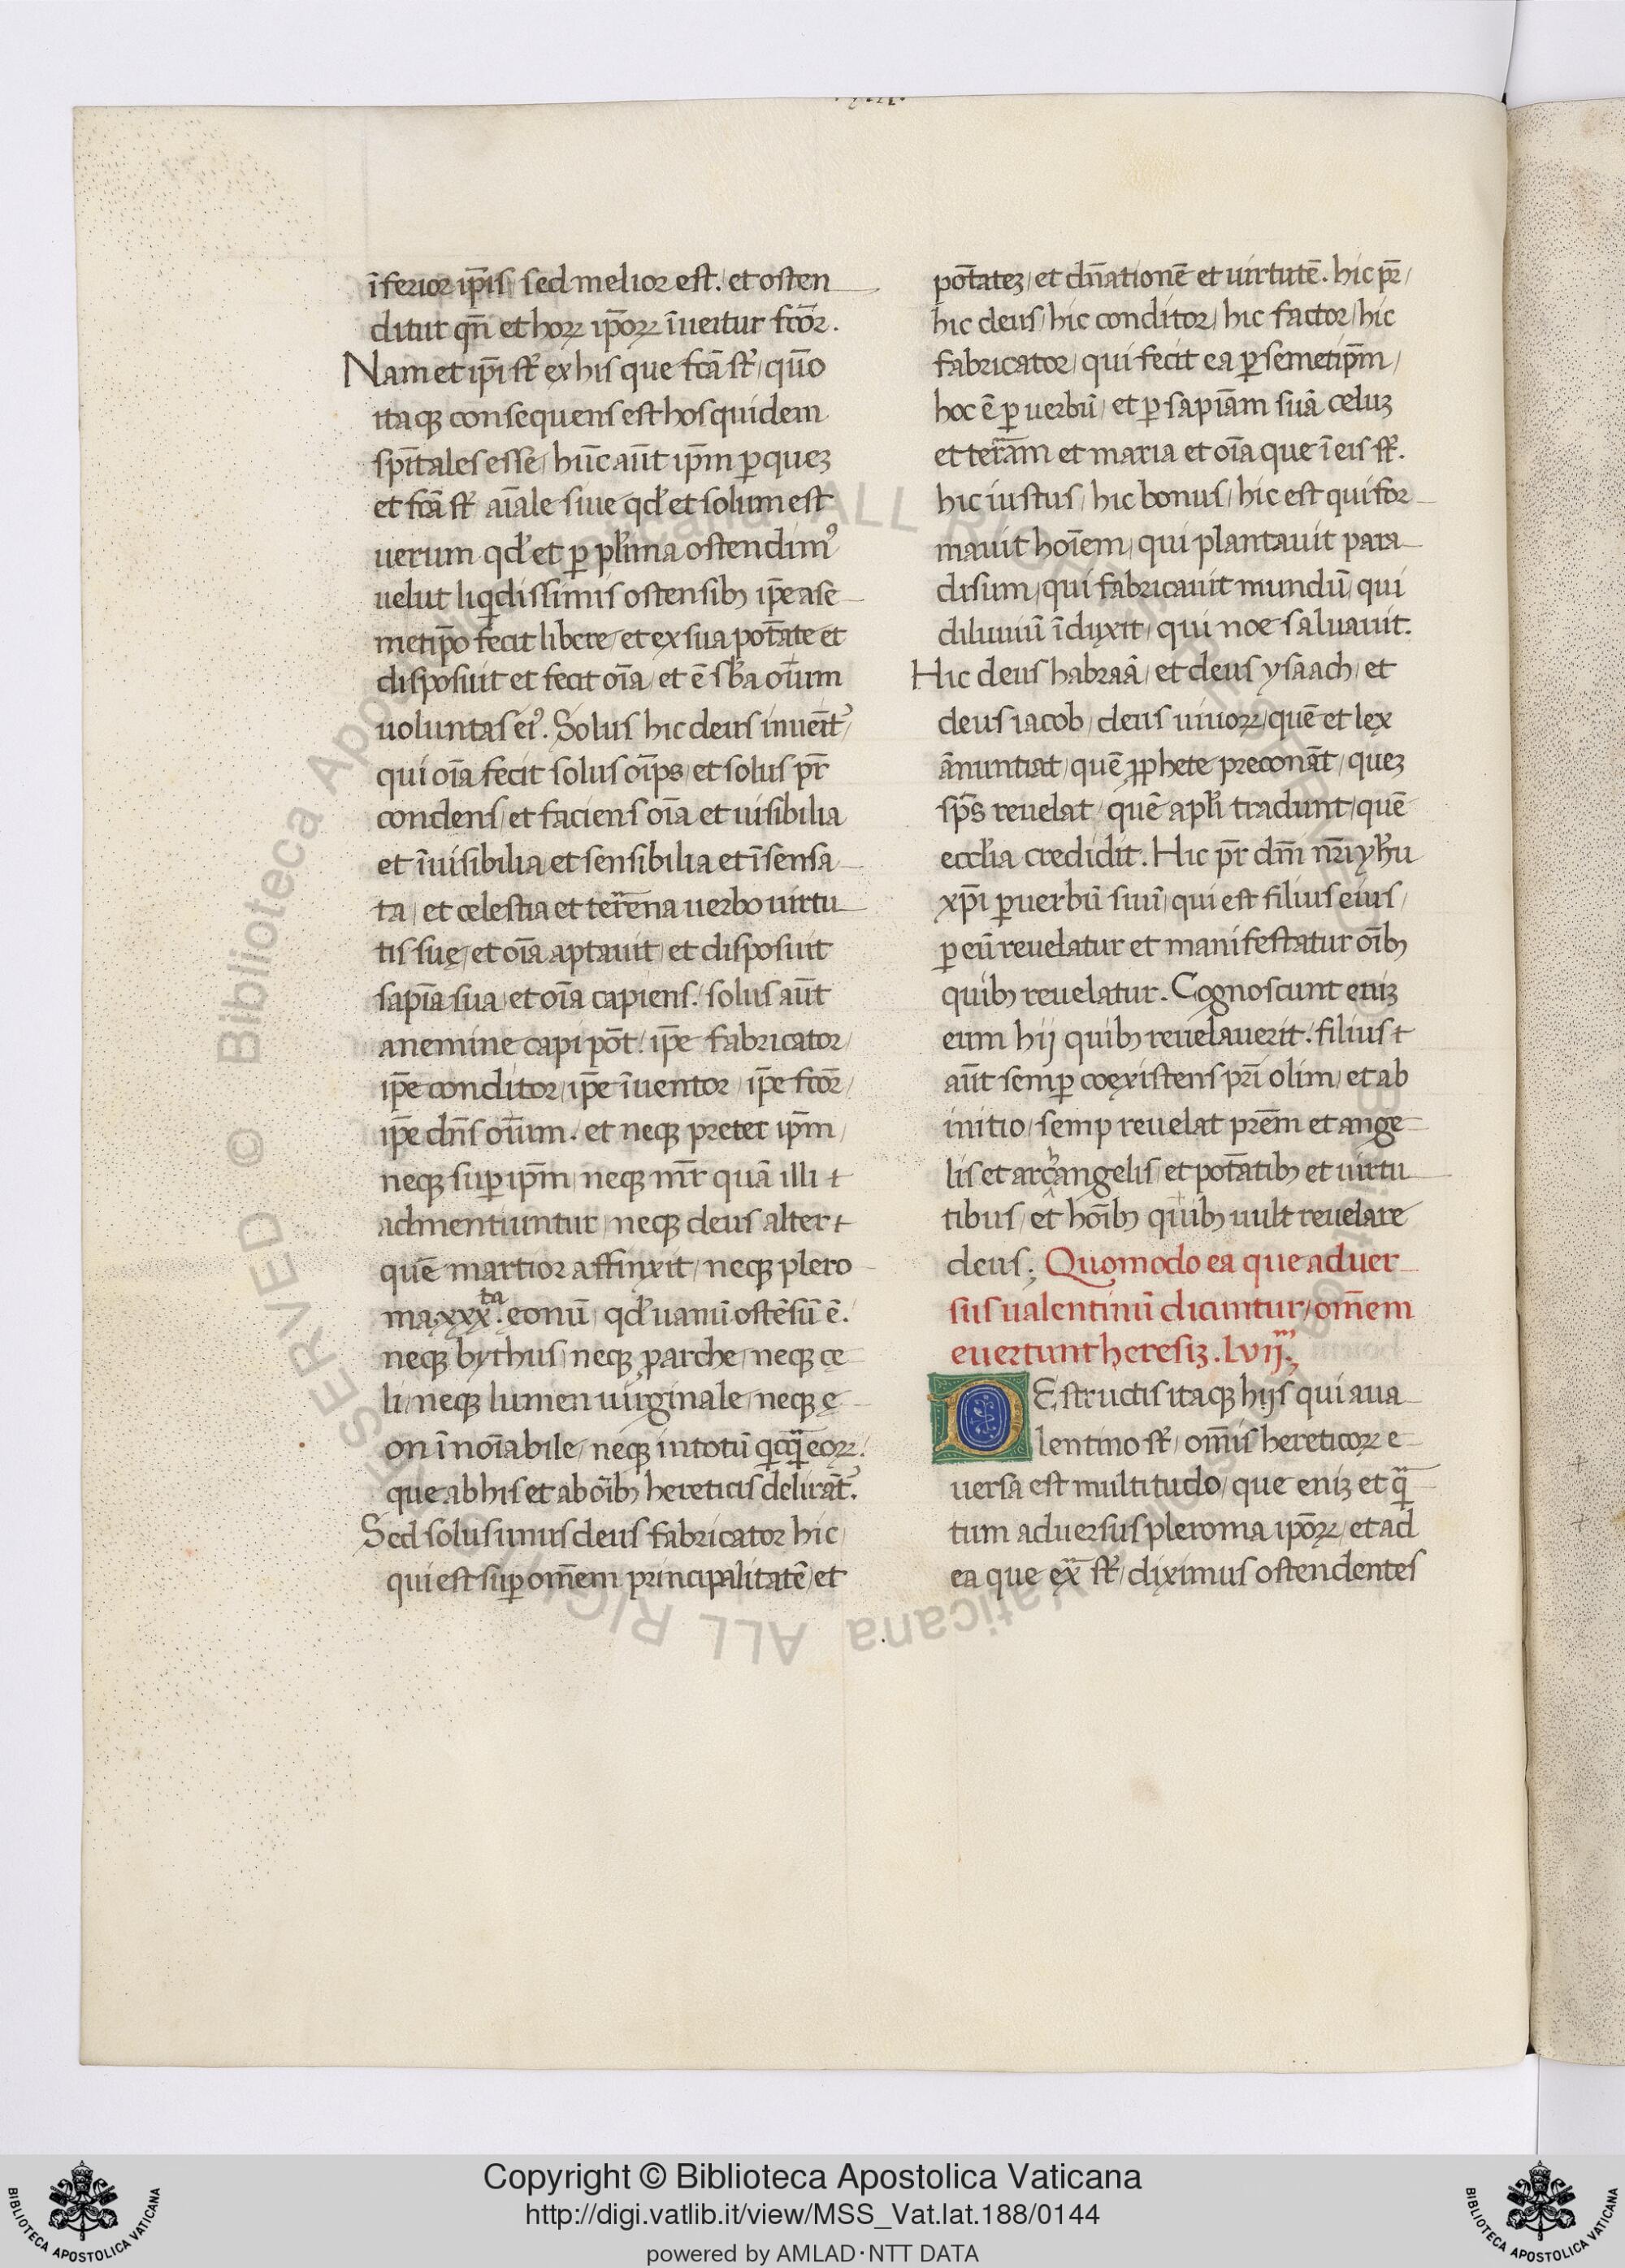 īferior ip̄is sed melior est. et osten
ditur qn̄ et hoꝝ ip̄oꝝ īueitur fcōr.
Nam et ip̄i st̄ ex his que fcā st̄ / quō
itaqꝫ consequens est hos quidem
spītales esse / hūc aūt ip̄m ꝑ quez
et fcā st̄ aīale siue qđ et solum est
uerum qđ et ꝑ plīma ostendimꝰ
uelut liqͥdissimis ostensibꝫ ip̄e a se
metip̄o fecit libere / et ex sua potāte et
disposuit et fecit oīa / et ē sƀa oīum
uoluntas eiꝰ. Solus hic deus inueīt᷑ /
qui oīa fecit solus oīps / et solus pr̄
condens / et faciens oīa et uisibilia
et īuisibilia et sensibilia et īsensa
ta / et celestia et terrena uerbo uirtu
tis suę / et oīa aptauit / et disposuit
sapīa sua / et oīa capiens. / solus aūt
a nemine capi pōt. / ip̄e fabricator /
ip̄e conditor / ip̄e īuentor / ip̄e fcōr /
ip̄e dn̄s oīum. et neqꝫ preter ip̄m /
neqꝫ suꝑ ip̄m / neqꝫ mr̄ quā illi +
admentiuntur / neqꝫ deus alter +
quē martior affinxit / neqꝫ plero
ma xxx.ta eonū / qđ uanū ostēsū ē.
neqꝫ bythus / neqꝫ ꝓarche / neqꝫ cę
li / neqꝫ lumen uirginale / neqꝫ ę
on īnoīabile / neqꝫ in totū qͥcqͣ eoꝝ.
que ab his et ab oībꝫ hereticis delirāt᷑.
Sed solus unus deus fabricator hic /
qui est suꝑ om̄em principalitatē / et
potātez / et dn̄ationē et uirtutē. hic pr̄ /
hic deus / hic conditor / hic factor / hic
fabricator / qui fecit ea ꝑ semetip̄m /
hoc ē ꝑ uerbū / et ꝑ sapīam suā celuz
et terram et maria et oīa que ī eis st̄.
hic iustus / hic bonus / hic est qui for
mauit hoīem / qui plantauit para
disum / qui fabricauit mundū / qui
diluuiū īduxit / qui noe saluauit.
Hic deus habraā / et deus ysaach / et
deus iacob / deus uiuoꝝ / quē et lex
ānuntiat / quē ꝓphete preconāt / quez
sp̄s reuelat / quē apłi tradunt / quē
eccłia credidit. Hic pr̄ dn̄i nr̄i yħu
xp̄i ꝑ uerbū suū / qui est filius eius /
ꝑ eū reuelatur et manifestatur oībꝫ
quibꝫ reuelatur. Cognoscunt eniz
eum hij quibꝫ reuelauerit. / filius +
aūt semꝑ coexistens pr̄i olim / et ab
initio / semp reuelat pr̄em et ange
lis et archangelis / et potātibꝫ et uirtu
tibus / et hoībꝫ quibꝫ uult reuelare
deus; Quomodo ea que aduer
sus ualentinū dicuntur / om̄em
euertunt heresiz. Lvij.
DEstructis itaqꝫ hijs qui a ua
lentino st̄ / om̄is hereticoꝝ e
uersa est multitudo / que eniz et qͣ
tum aduersus pleroma ip̄oꝝ / et ad
ea que exͣ st̄ / diximus ostendentes
Copyright © Biblioteca Apostolica Vaticana
http://digi.vatlib.it/view/MSS_Vat.lat.188/0144
powered by AMLAD·NTT DATA